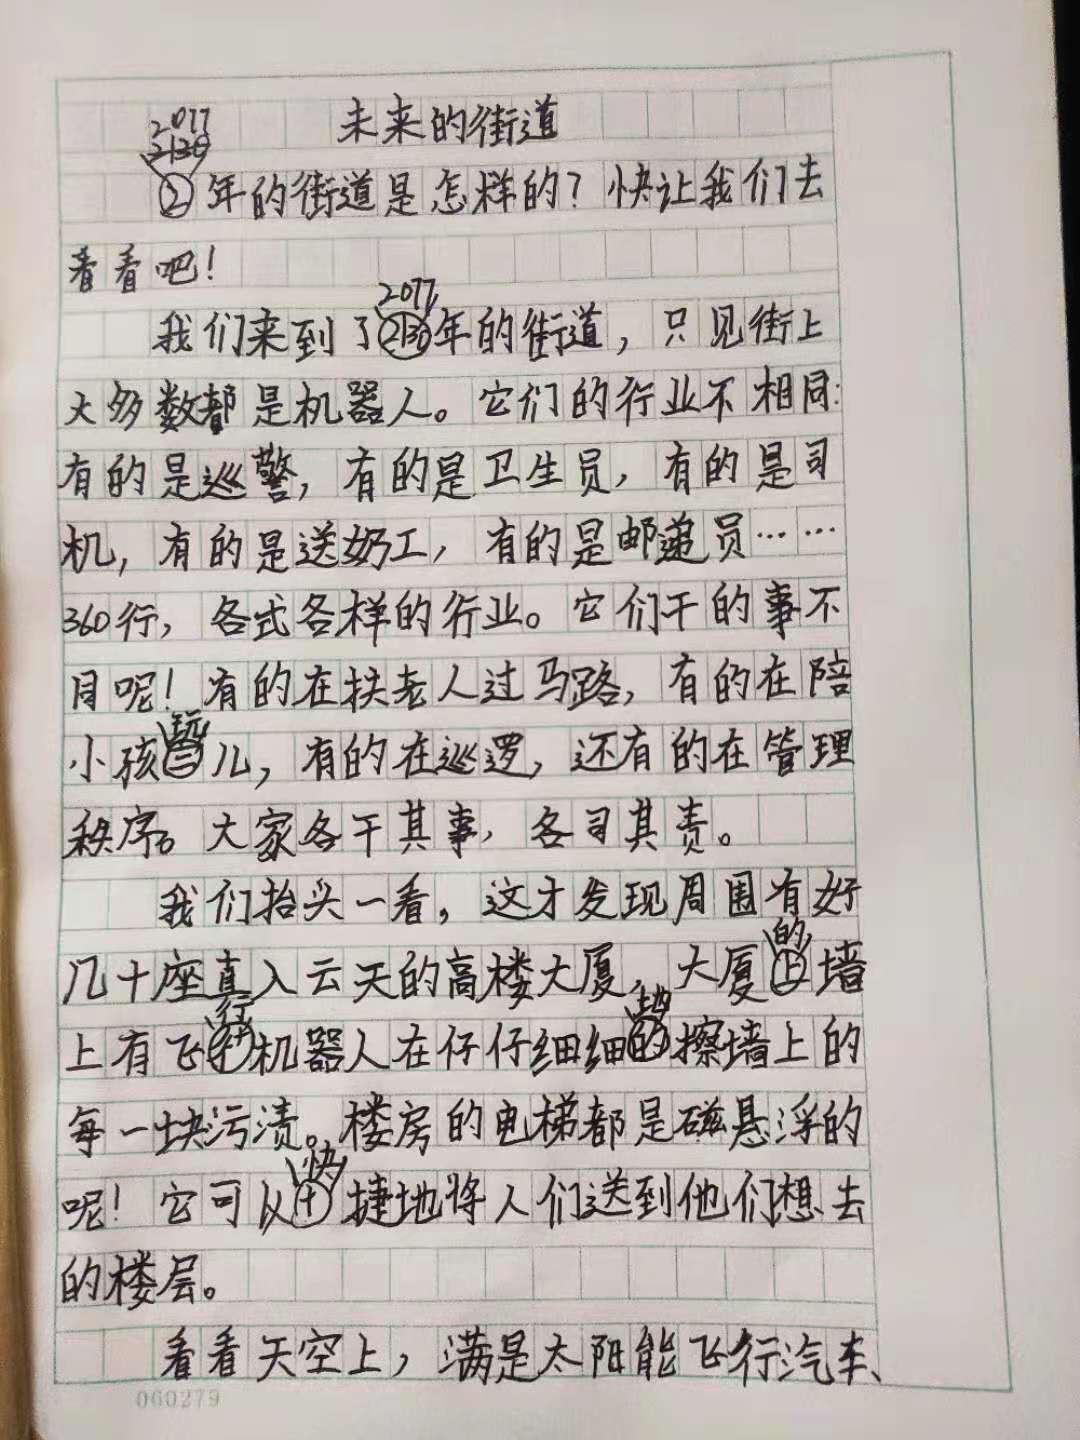 未来的街道
2077
2136
②年的街道是怎样的？快让我们去
看看吧！
2077
我们来到了2136年的街道，只见街上
大多数都是机器人。它们的行业不相同：
有的是巡警，有的是卫生员，有的是司
机，有的是送奶工，有的是邮递员……
360行，各式各样的行业。它们干的事不
同呢！有的在扶老人过马路，有的在陪
玩
小孩儿，有的在巡逻，还有的在管理
秩序。大家各干其事，各司其责。
我们抬头一看，这才发现周围有好
的
几十座直入云天的高楼大厦，大厦上墙
行 地
上有飞机器人在仔仔细细的擦墙上的
每一块污渍。楼房的电梯都是磁悬浮的
快
呢！它可以捷地将人们送到他们想去
的楼层。
看看天空上，满是太阳能飞行汽车、
060279